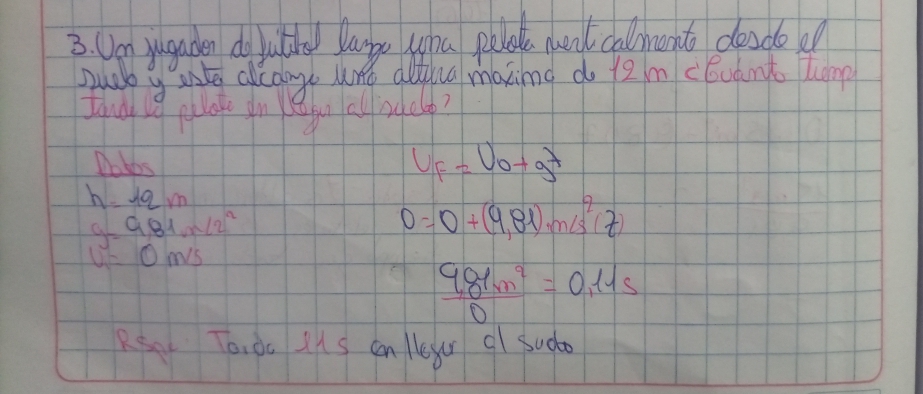 3. Un jugador de futbol lanza una pelota verticalmente desde el
suelo y esta alcanza una altura maxima de 12 m ¿Cuanto tiemp
tarda la pelota en llegar al suelo?
Datos
h = 12 m
g = 9,81 m/s²
V = 0 m/s
VF = V0 + gt
0 = 0 + (9,81) m/s² (t)
9,81 m² / 0 = 0,11 s
Tarda 11 s en llegar al suelo